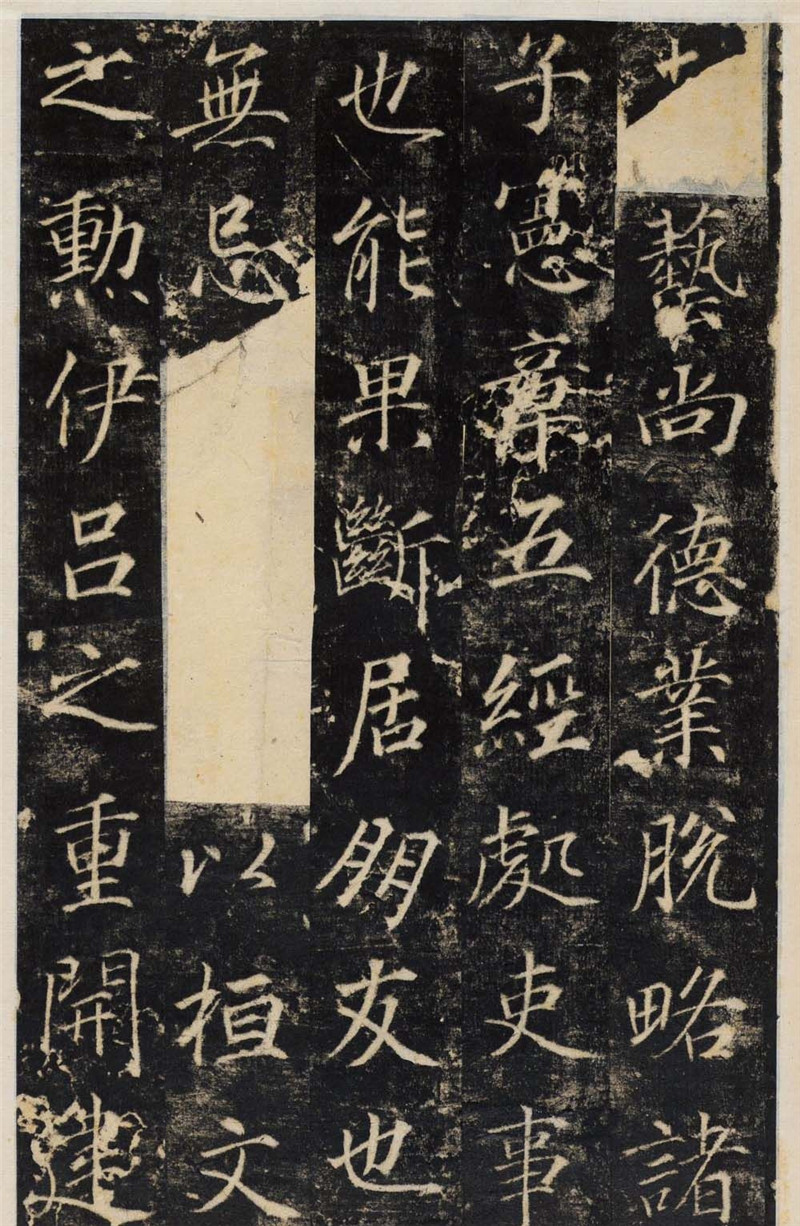 藝尚德業脫略諸
子憲五經處吏事
也能果斷居朋友也
無忌以桓文
之勲伊呂之重開建